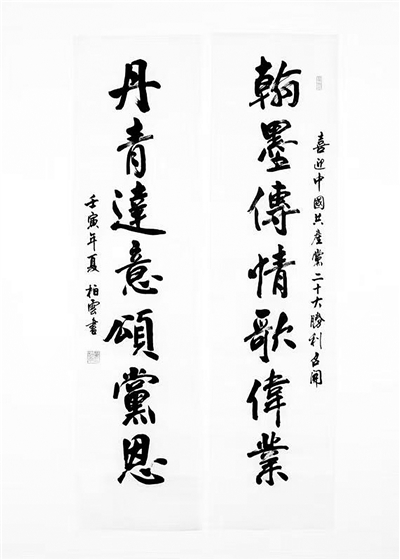 喜迎中國共產黨二十大勝利召開
翰墨傳情歌偉業
丹青達意頌黨恩
壬寅年夏 柏雲書